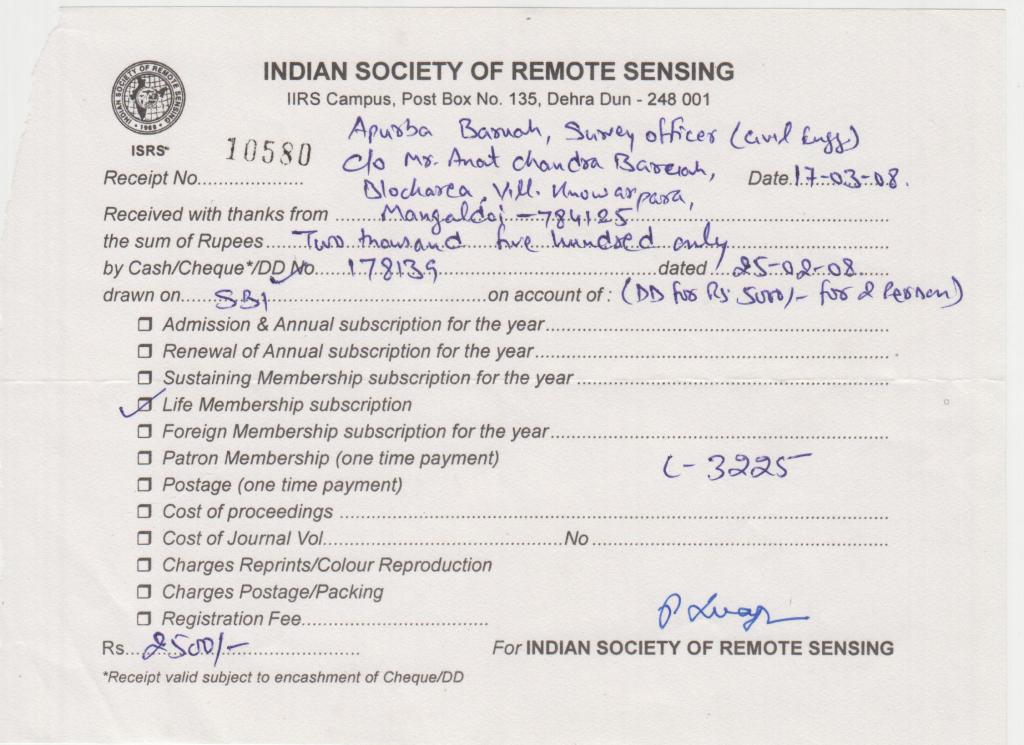 INDIAN SOCIETY OF REMOTE SENSING
IIRS Campus, Post Box No. 135, Dehra Dun - 248 001
INDIAN SOCIETY OF REMOTE SENSING
• 1969 •
ISRS*
Apurba Baruah, Survey officer (Civil Engg)
10580
c/o Mr. Anat Chandra
Receipt No....................
Date 17-03-08.
Vill.
Received with thanks from ... Mangaldoi - 784125
the sum of Rupees ... Two thousand five hundred only
by Cash/Cheque*/DD No. 178139 dated 25-02-08
drawn on SBI on account of : (DD for Rs 5000/- for 2 Person)
❒ Admission & Annual subscription for the year
❒ Renewal of Annual subscription for the year
❒ Sustaining Membership subscription for the year
✓ Life Membership subscription
❒ Foreign Membership subscription for the year
❒ Patron Membership (one time payment)
L-3225
❒ Postage (one time payment)
❒ Cost of proceedings
❒ Cost of Journal Vol. No
❒ Charges Reprints/Colour Reproduction
❒ Charges Postage/Packing
❒ Registration Fee
Rs. 2500/-
For INDIAN SOCIETY OF REMOTE SENSING
*Receipt valid subject to encashment of Cheque/DD